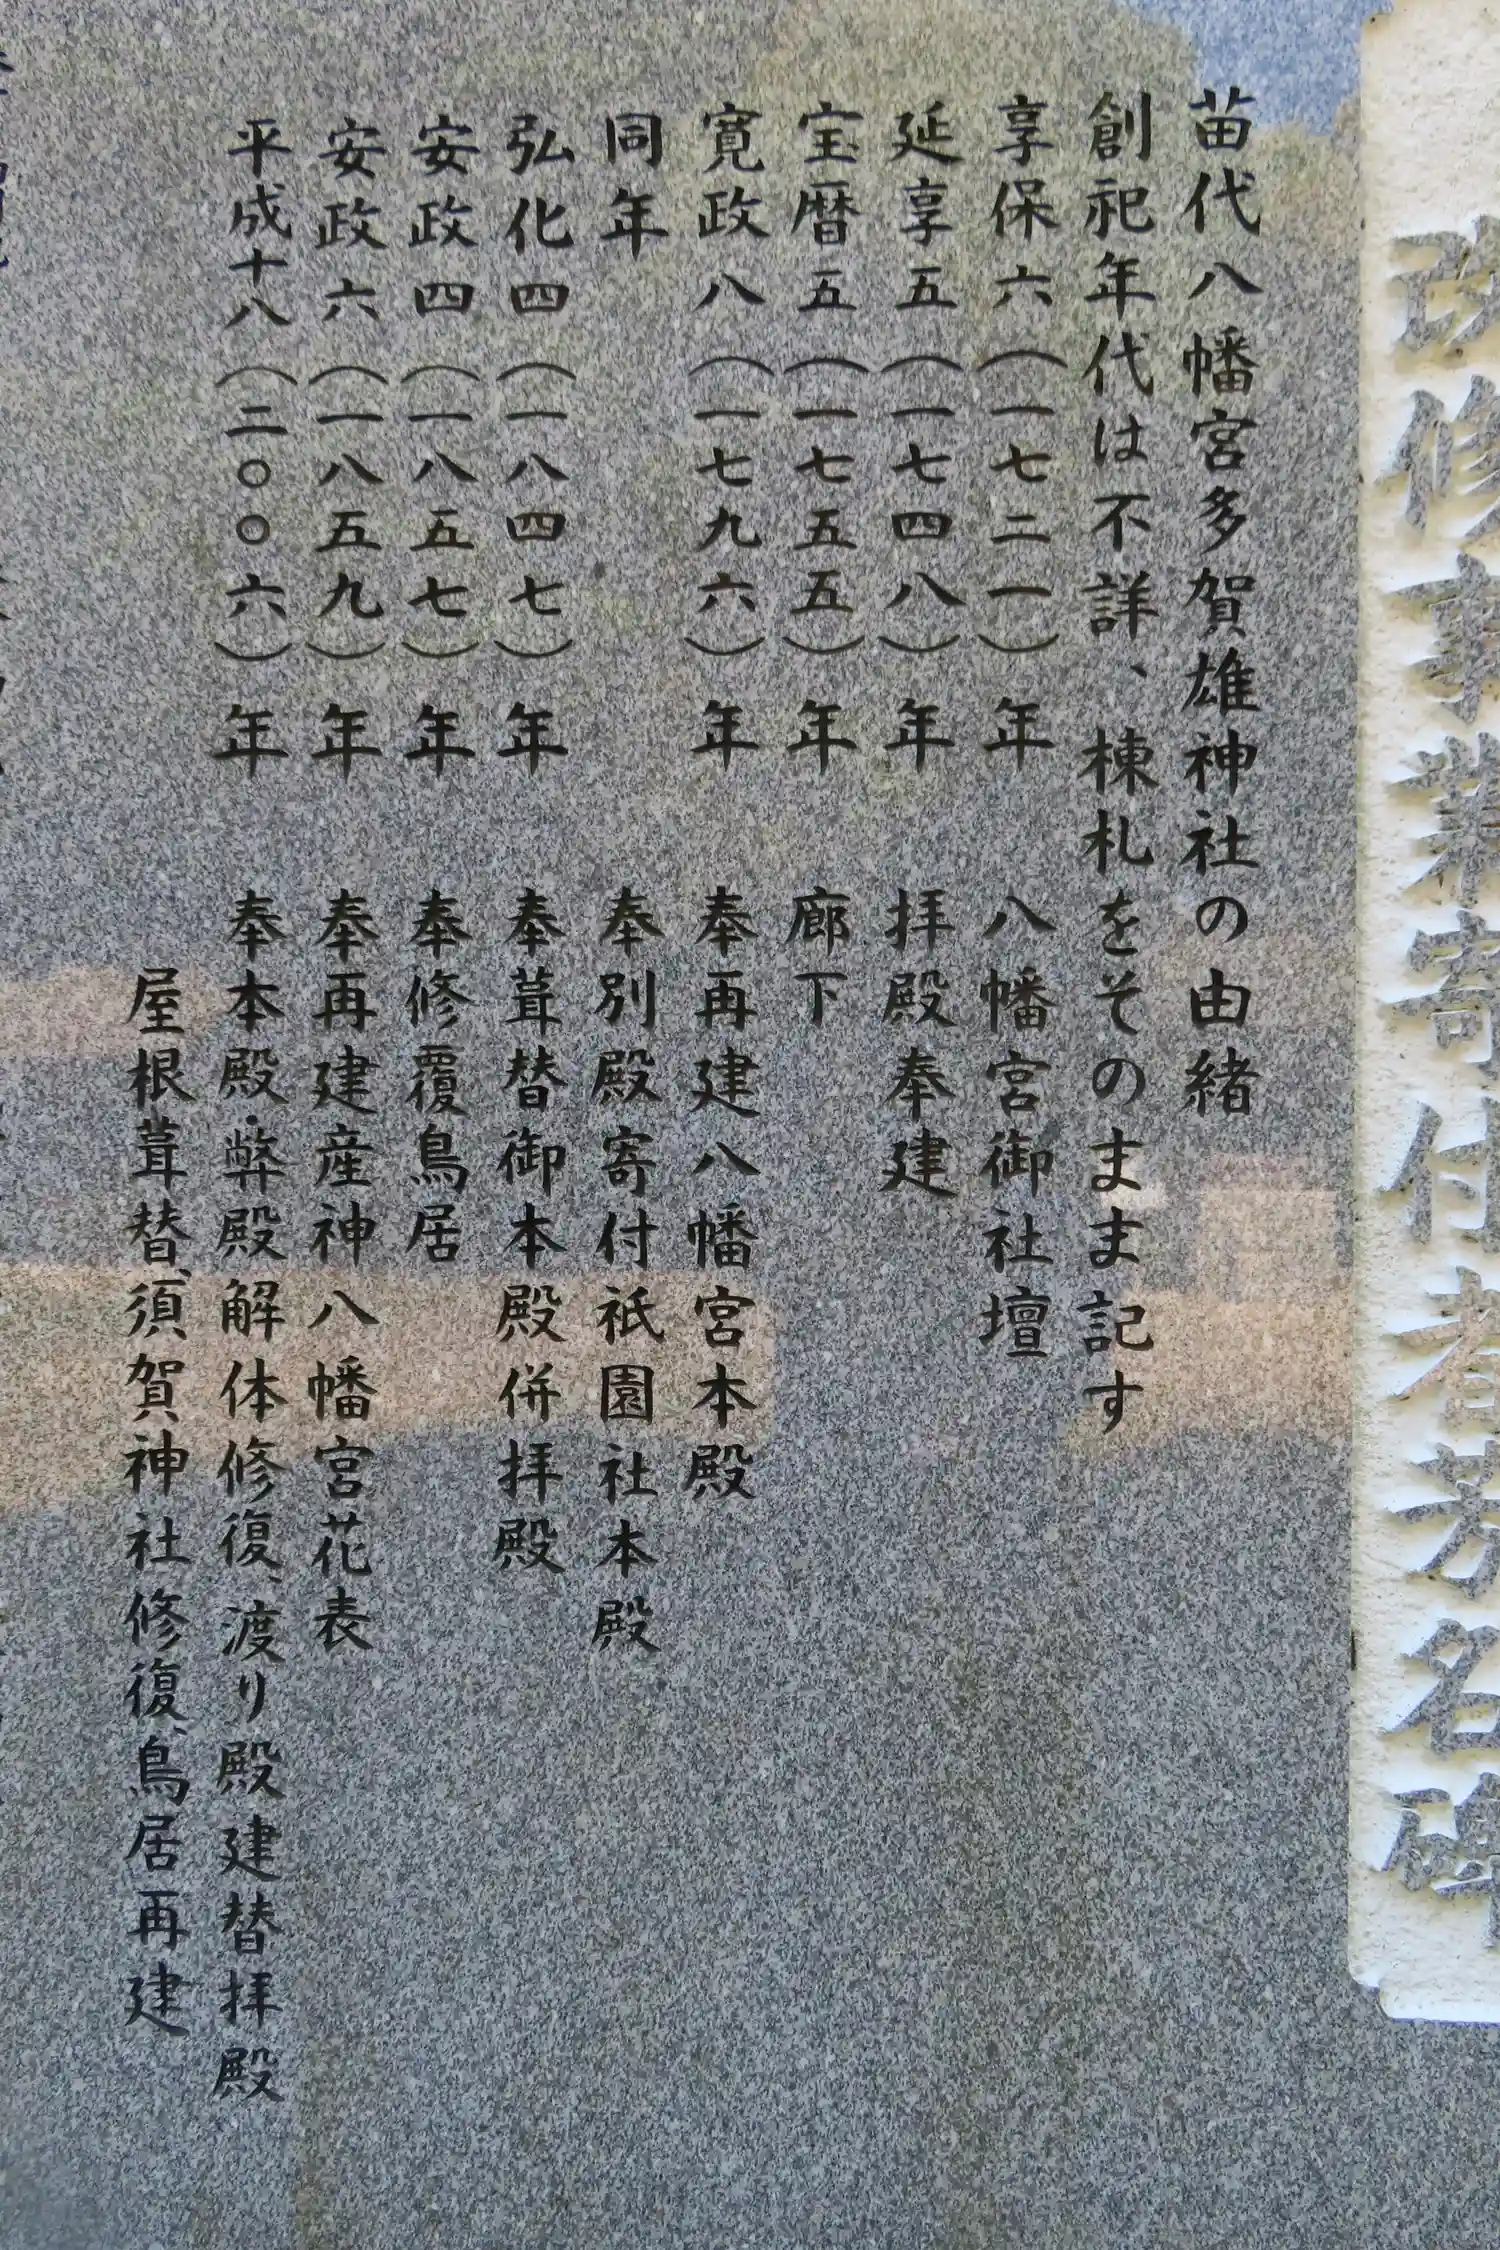 改修事業寄付者芳名碑
苗代八幡宮多賀雄神社の由緒
創祀年代は不詳、棟札をそのまま記す
享保六(一七二一)年 八幡宮御社壇
延享五(一七四八)年 拝殿奉建
宝暦五(一七五五)年 廊下
寛政八(一七九六)年 奉再建八幡宮本殿
同年 奉別殿寄付祇園社本殿
弘化四(一八四七)年 奉葺替御本殿併拝殿
安政四(一八五七)年 奉修覆鳥居
安政六(一八五九)年 奉再建産神八幡宮花表
平成十八(二〇〇六)年 奉本殿・弊殿解体修復、渡り殿建替拝殿
屋根葺替、須賀神社修復、鳥居再建